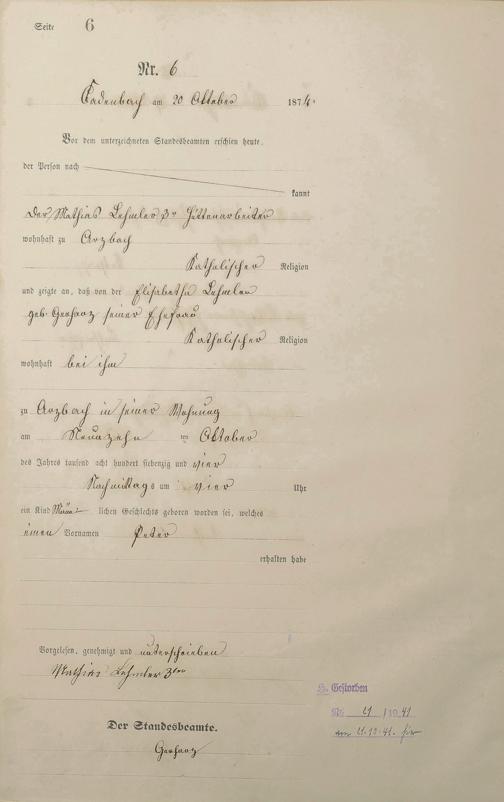 Seite 6
Nr. 6
Cadenbach am 20 Oktober 1874.
Vor dem unterzeichneten Standesbeamten erschien heute,
der Person nach
kannt
der Mathias Lehmler 3r Hüttenarbeiter
wohnhaft zu Arzbach
Katholischer Religion
und zeigte an, daß von der Elisabetha Lehmler
geb. Gerharz seiner Ehefrau
Katholischer Religion
wohnhaft bei ihm
zu Arzbach in seiner Wohnung
am Neunzehn ten Oktober
des Jahres tausend acht hundert siebenzig und vier
Nachmittags um vier Uhr
ein Kind männ lichen Geschlechts geboren worden sei, welches
einen Vornamen Peter
erhalten habe
Vorgelesen, genehmigt und unterschrieben
Mathias Lehmler 3ter
Der Standesbeamte.
Gerharz
Gestorben
Nr. 21 / 1941
am 21.12.41. hier